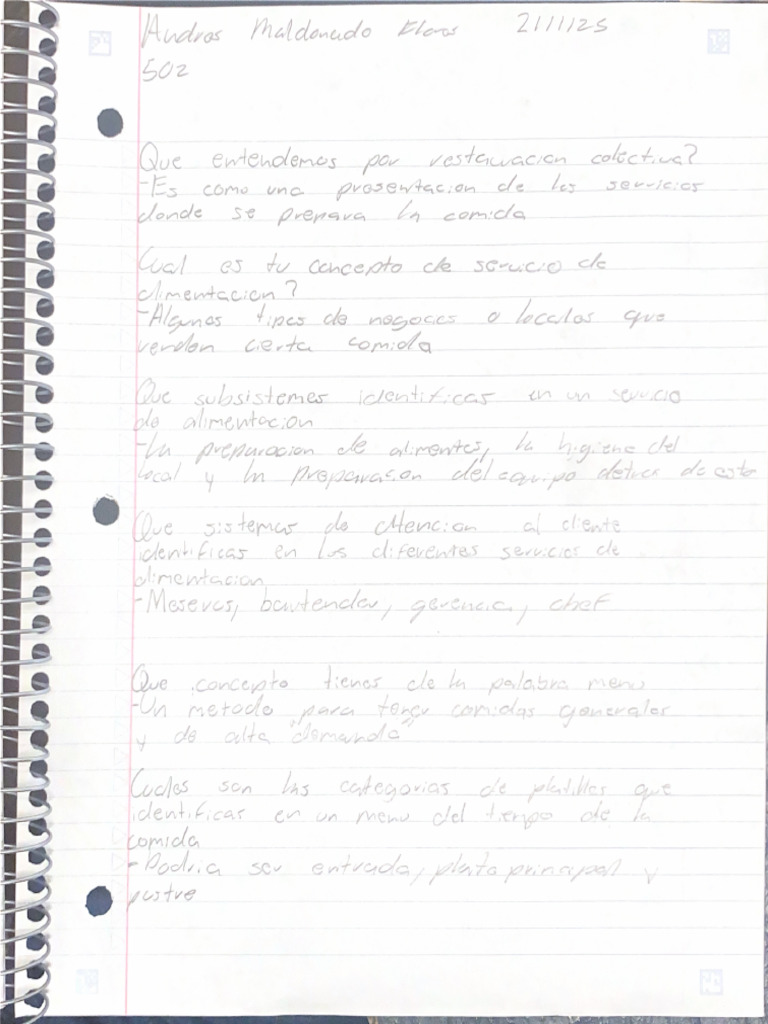 Andros Maldonado Flores 21/1/25
502
Que entendemos por restauracion colectiva?
-Es como una presentacion de los servicios
donde se prepara la comida
Cual es tu concepto de servicio de
alimentacion?
-Algunos tipos de negocios o locales que
venden cierta comida
Que subsistemas identificas en un servicio
de alimentacion
-La preparacion de alimentos, la higiene del
local y la preparacion del equipo detras de esto
Que sistemas de atencion al cliente
identificas en los diferentes servicios de
alimentacion
-Meseros, bartender, gerencia, chef
Que concepto tienes de la palabra menu
-Un metodo para tener comidas generales
y de alta "demanda"
Cuales son las categorias de platillos que
identificas en un menu del tiempo de la
comida
-Podria ser entrada, plato principal y
postre